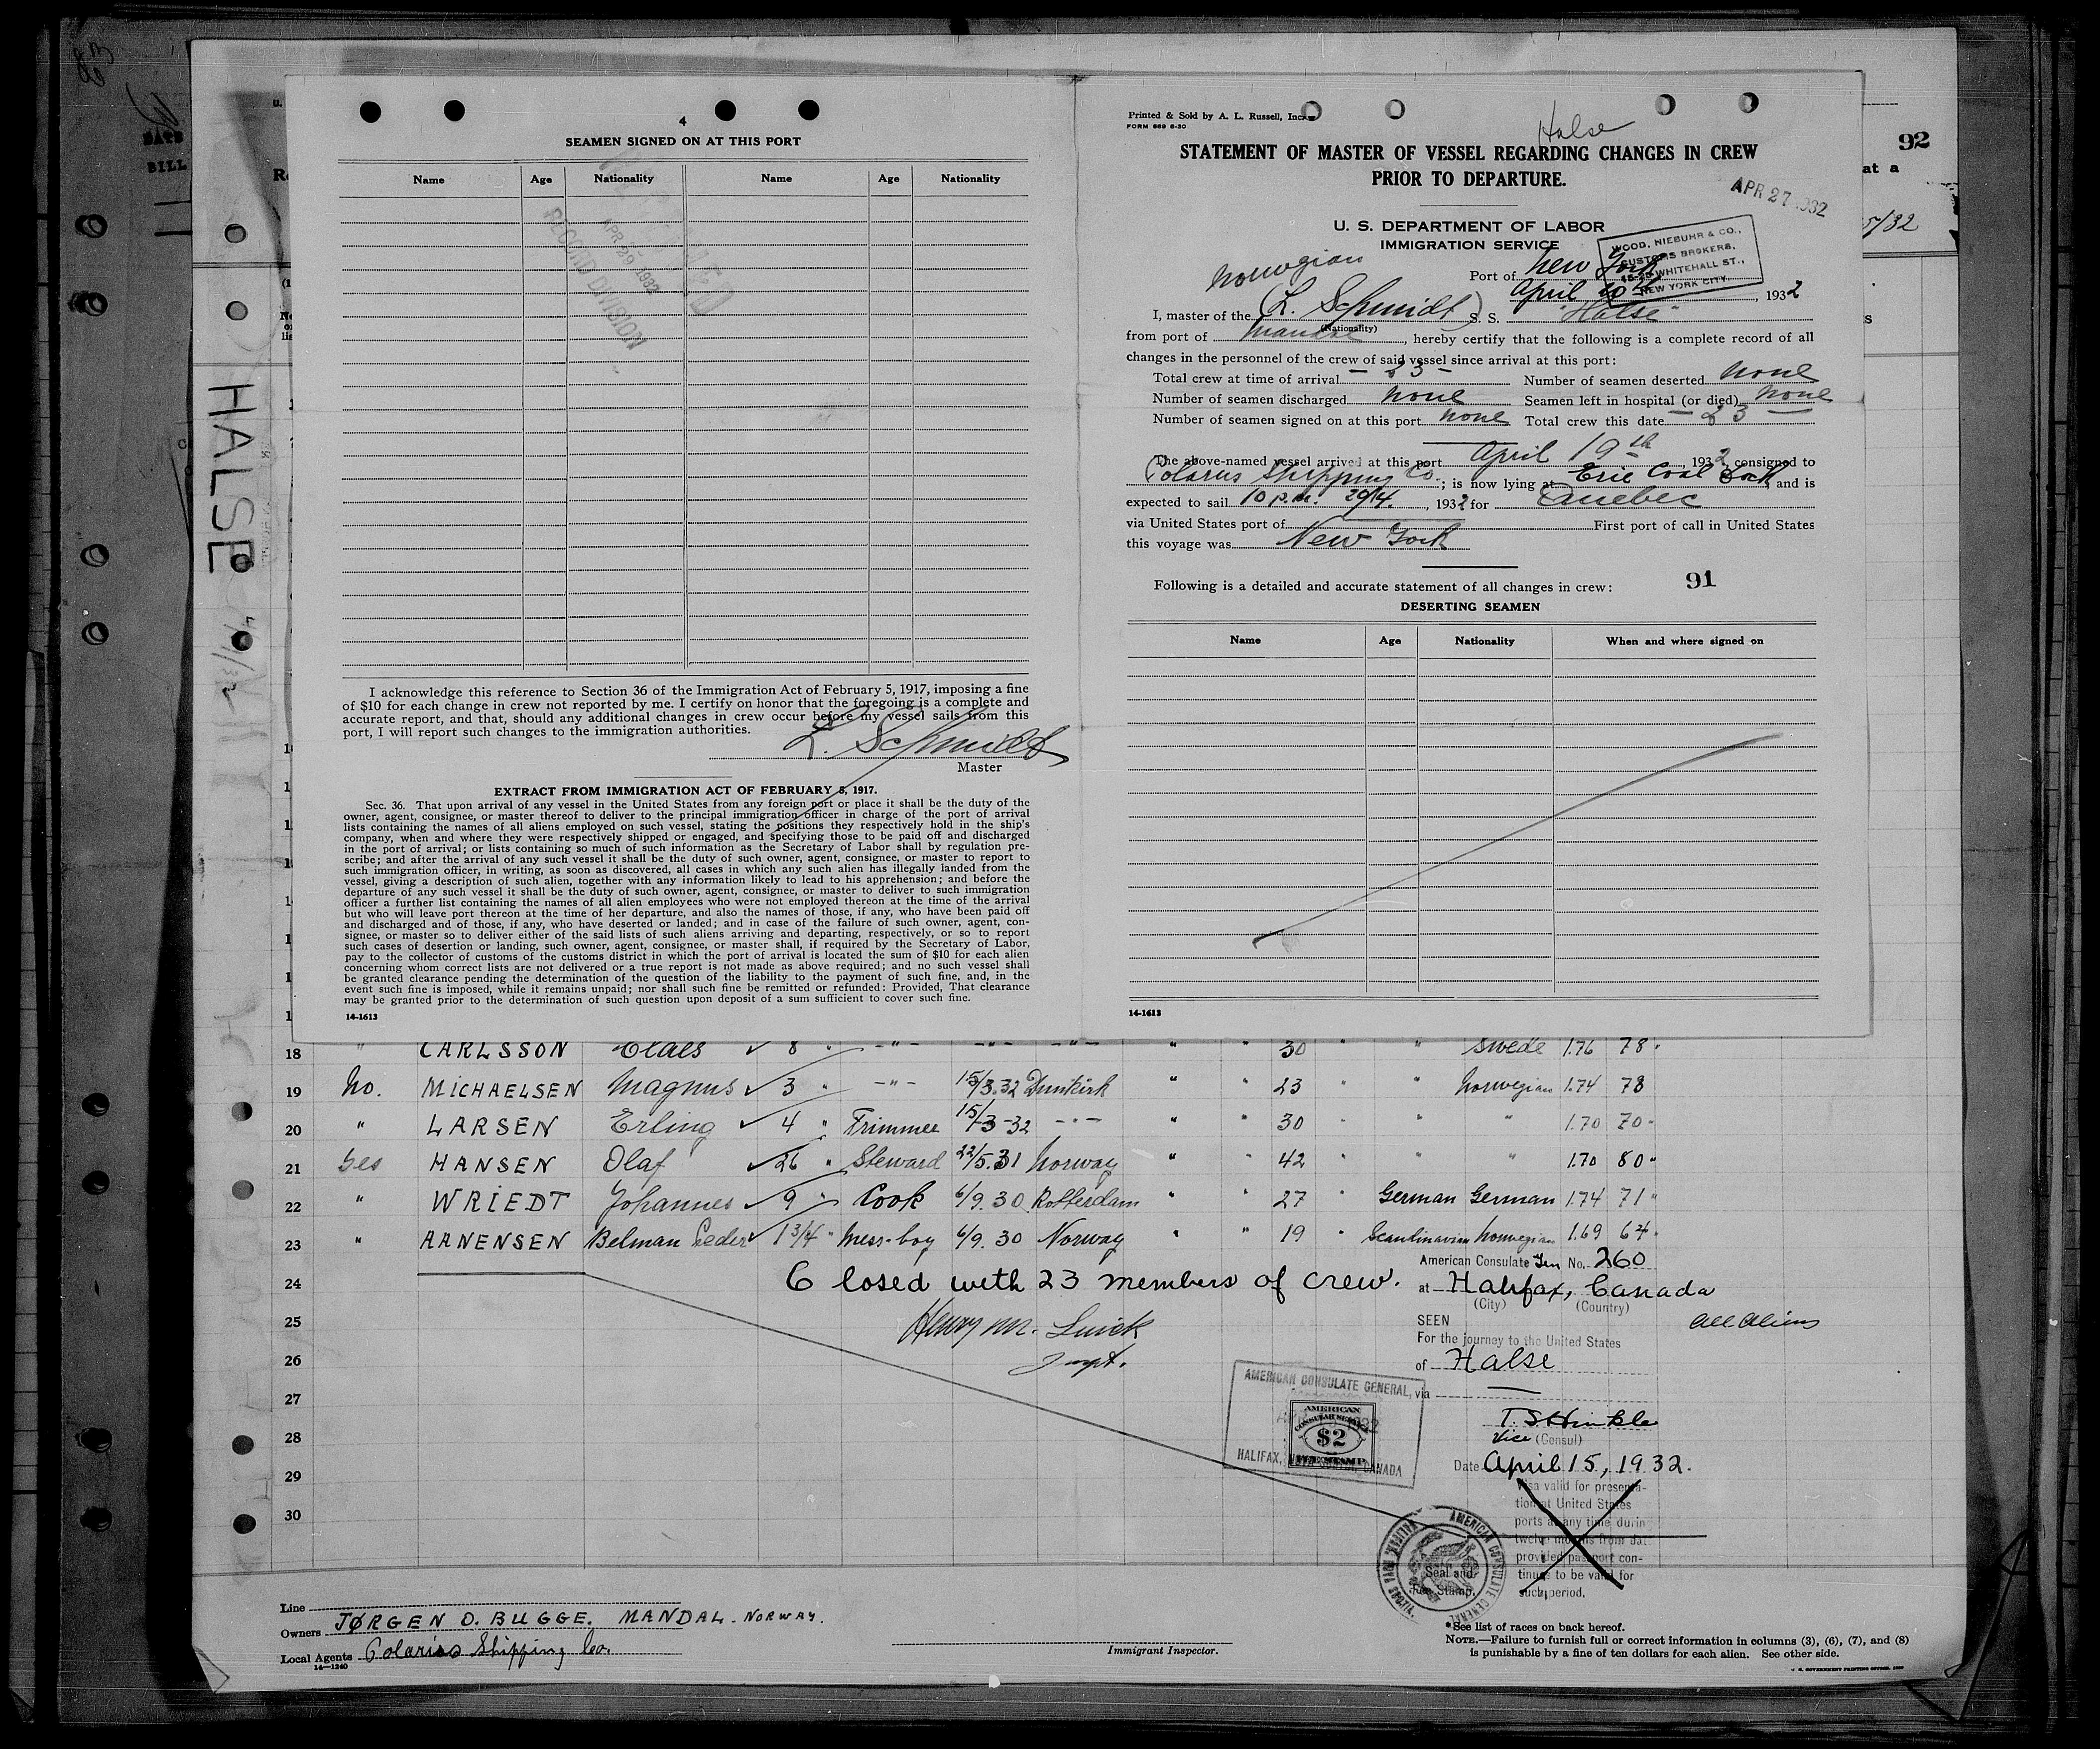 92
at a
5/32
HALSE
4
SEAMEN SIGNED ON AT THIS PORT
Name Age Nationality Name Age Nationality
APR 29 1932
RECORD DIVISION
I acknowledge this reference to Section 36 of the Immigration Act of February 5, 1917, imposing a fine
of $10 for each change in crew not reported by me. I certify on honor that the foregoing is a complete and
accurate report, and that, should any additional changes in crew occur before my vessel sails from this
port, I will report such changes to the immigration authorities.
L. Schmidt
Master
EXTRACT FROM IMMIGRATION ACT OF FEBRUARY 5, 1917.
Sec. 36. That upon arrival of any vessel in the United States from any foreign port or place it shall be the duty of the
owner, agent, consignee, or master thereof to deliver to the principal immigration officer in charge of the port of arrival
lists containing the names of all aliens employed on such vessel, stating the positions they respectively hold in the ship's
company, when and where they were respectively shipped or engaged, and specifying those to be paid off and discharged
in the port of arrival; or lists containing so much of such information as the Secretary of Labor shall by regulation pre-
scribe; and after the arrival of any such vessel it shall be the duty of such owner, agent, consignee, or master to report to
such immigration officer, in writing, as soon as discovered, all cases in which any such alien has illegally landed from the
vessel, giving a description of such alien, together with any information likely to lead to his apprehension; and before the
departure of any such vessel it shall be the duty of such owner, agent, consignee, or master to deliver to such immigration
officer a further list containing the names of all alien employees who were not employed thereon at the time of the arrival
but who will leave port thereon at the time of her departure, and also the names of those, if any, who have been paid off
and discharged and of those, if any, who have deserted or landed; and in case of the failure of such owner, agent, con-
signee, or master so to deliver either of the said lists of such aliens arriving and departing, respectively, or so to report
such cases of desertion or landing, such owner, agent, consignee, or master shall, if required by the Secretary of Labor,
pay to the collector of customs of the customs district in which the port of arrival is located the sum of $10 for each alien
concerning whom correct lists are not delivered or a true report is not made as above required; and no such vessel shall
be granted clearance pending the determination of the question of the liability to the payment of such fine, and, in the
event such fine is imposed, while it remains unpaid; nor shall such fine be remitted or refunded: Provided, That clearance
may be granted prior to the determination of such question upon deposit of a sum sufficient to cover such fine.
14-1613
Printed & Sold by A. L. Russell, Inc.
FORM 689 6-30
Halse
STATEMENT OF MASTER OF VESSEL REGARDING CHANGES IN CREW
PRIOR TO DEPARTURE.
APR 27 1932
U. S. DEPARTMENT OF LABOR
IMMIGRATION SERVICE
WOOD, NIEBUHR & CO.,
CUSTOMS BROKERS,
WHITEHALL ST.,
NEW YORK CITY.
Port of New York
Norwegian
April 1932
I, master of the (L. Schmidt) S. S. "Halse"
(Nationality)
from port of Mandal, hereby certify that the following is a complete record of all
changes in the personnel of the crew of said vessel since arrival at this port:
Total crew at time of arrival - 23 - Number of seamen deserted none
Number of seamen discharged none Seamen left in hospital (or died) none
Number of seamen signed on at this port none Total crew this date - 23 -
The above-named vessel arrived at this port April 19th, 1932, consigned to
Polarus Shipping Co.; is now lying at Erie Coal Dock, and is
expected to sail 10 p.m. 29/4., 1932 for Quebec
via United States port of First port of call in United States
this voyage was New York
Following is a detailed and accurate statement of all changes in crew: 91
DESERTING SEAMEN
Name Age Nationality When and where signed on
14-1613
18 " CARLSSON Claes ✓ 8 " -"- -"- -"- " " 30 " " Swede 1.76 78 "
19 No. MICHAELSEN Magnus ✓ 3 " -"- 15/3.32 Dunkirk " " 23 " " Norwegian 1.74 78
20 " LARSEN Erling ✓ 4 " Trimmer 15/3-32 -"- " " 30 " " " 1.70 70 "
21 Yes HANSEN Olaf ✓ 26 " Steward 22/5.31 Norway " " 42 " " " 1.70 80 "
22 " WRIEDT Johannes ✓ 9 " Cook 6/9.30 Rotterdam " " 27 " German German 1.74 71 "
23 " AANENSEN Belman Peder ✓ 1 3/4 " Mess-boy 6/9.30 Norway " " 19 " Scandinavian Norwegian 1.69 64 "
24 Closed with 23 members of crew.
25
26
27
28
29
30
American Consulate Gen No. 260
at Halifax, Canada
(City) (Country)
SEEN
All Aliens
For the journey to the United States
of Halse
via
T. S. Hinkle
Vice (Consul)
Date April 15, 1932.
Visa valid for presenta-
tion at United States
ports at any time durin
twelve months from dat
provided passport con-
tinues to be valid for
such period.
Seal and
Fee Stamp.
AMERICAN CONSULATE GENERAL,
HALIFAX, NOVA SCOTIA, CANADA
AMERICAN
CONSULAR SERVICE
$2
FEE STAMP
AMERICAN CONSULATE GENERAL
Line
Owners JØRGEN O. BUGGE. MANDAL - NORWAY.
Local Agents Polarus Shipping Co.
14-1240
Immigrant Inspector.
*See list of races on back hereof.
NOTE.—Failure to furnish full or correct information in columns (3), (6), (7), and (8)
is punishable by a fine of ten dollars for each alien. See other side.
U. S. GOVERNMENT PRINTING OFFICE